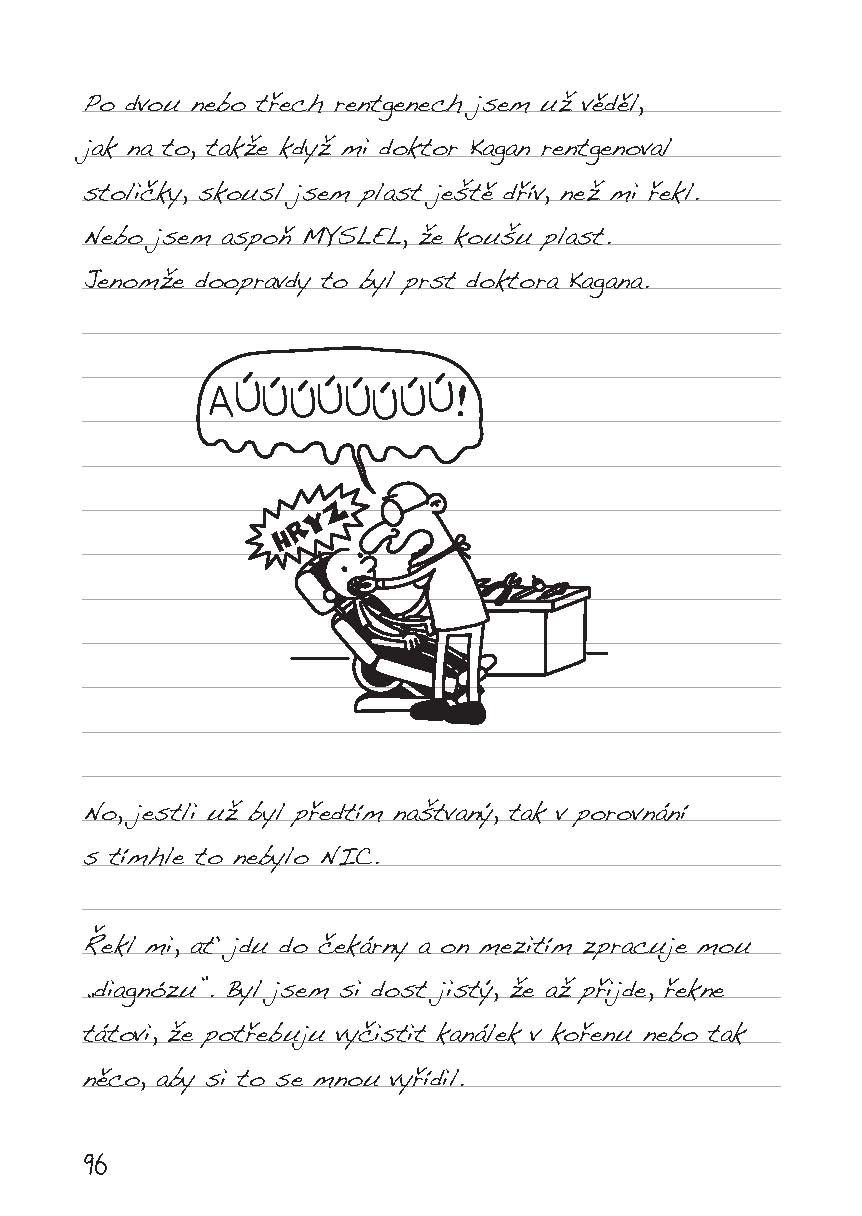 Po dvou nebo třech rentgenech jsem už věděl,
jak na to, takže když mi doktor Kagan rentgenoval
stoličky, skousl jsem plast ještě dřív, než mi řekl.
Nebo jsem aspoň MYSLEL, že koušu plast.
Jenomže doopravdy to byl prst doktora Kagana.
AÚÚÚÚÚÚÚÚ!
HRYZ
No, jestli už byl předtím naštvaný, tak v porovnání
s tímhle to nebylo NIC.
Řekl mi, ať jdu do čekárny a on mezitím zpracuje mou
„diagnózu“. Byl jsem si dost jistý, že až přijde, řekne
tátovi, že potřebuju vyčistit kanálek v kořenu nebo tak
něco, aby si to se mnou vyřídil.
96